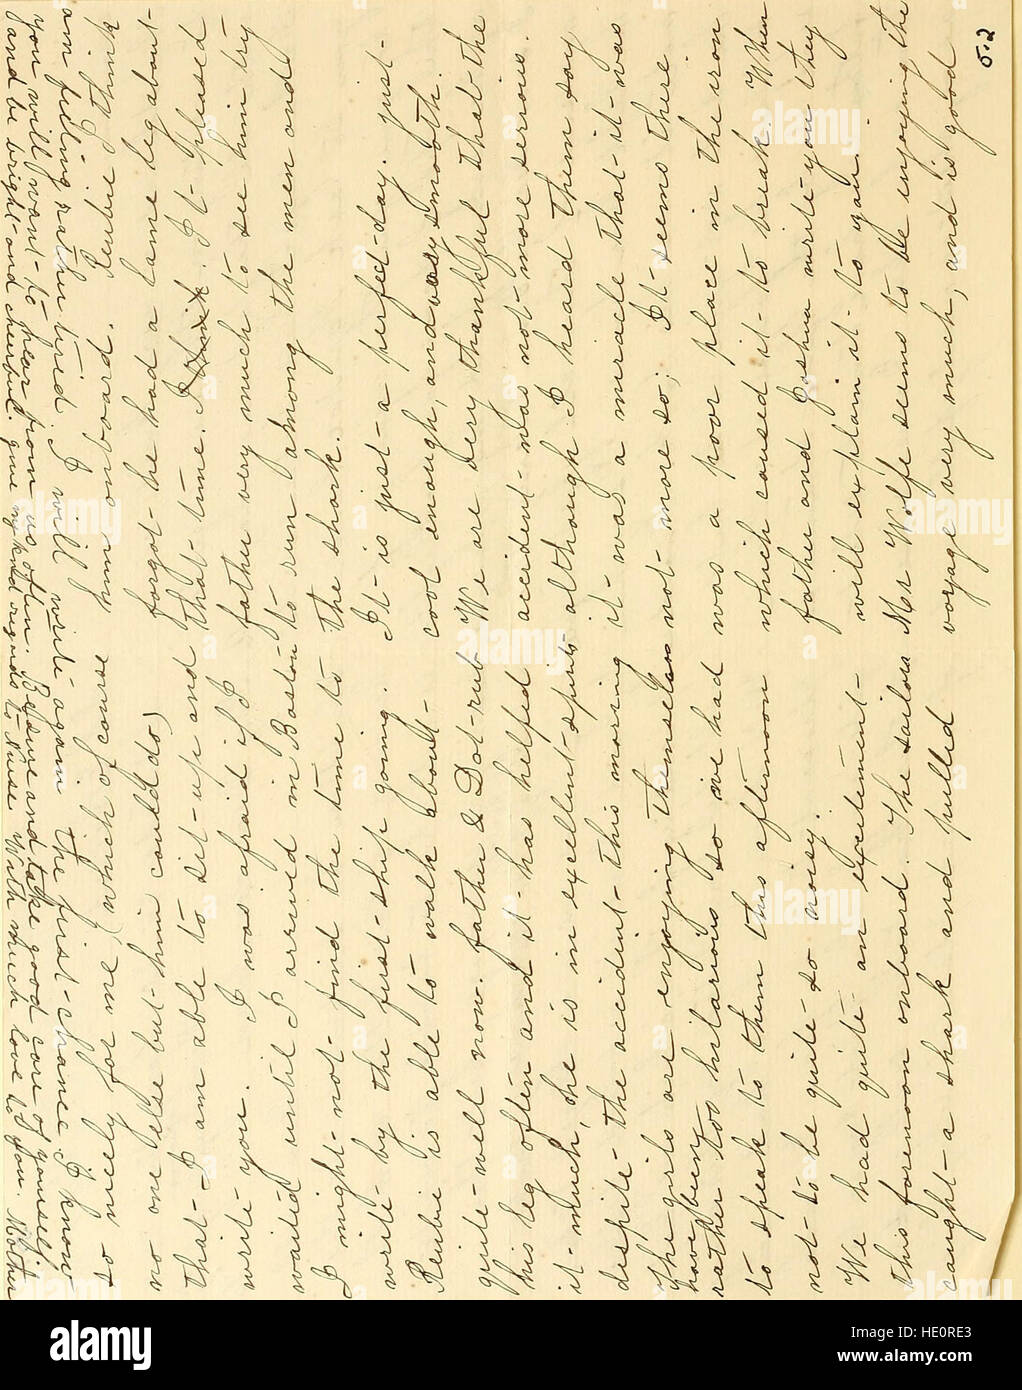 5.2
so nicely for me, (which of course
no one else but him could do)
that I am able to sit up and
write you. I was afraid if I
waited until I arrived in Boston
I might not find the time to
write by the first ship going.
Reubie is able to walk about
quite well now. father & Dot rub
his leg often and it has helped
it much, he is in excellent spirits
despite the accident this morning
The girls are enjoying themselves
have been
rather too hilarious so we had
to speak to them this afternoon
not to be quite so noisy.
We had quite an excitement
this forenoon onboard. The sailors
caught a shark and pulled
him onboard. Reubie I think
forgot he had a lame leg about
that time. I think. I It pleased
father very much to see him try
to run among the men and
the shark.
It is just a perfect day. just
cool enough, and very smooth.
We are very thankful that the
accident was not more serious.
although I heard them say
it was a miracle that it was
not more so; It seems there
was a poor place in the iron
which caused it to break. When
father and Joshua write you they
will explain it to you.
Mr Wolfe seems to be enjoying the
voyage very much, and is good
am feeling rather tired. I will write again the first chance I know
you will want to hear from us often. Be sure and take good care of yourself
and be bright and cheerful. give my kind regards to Nurse. With much love to you. Mother
alamy
Image ID: HE0RE3
www.alamy.com